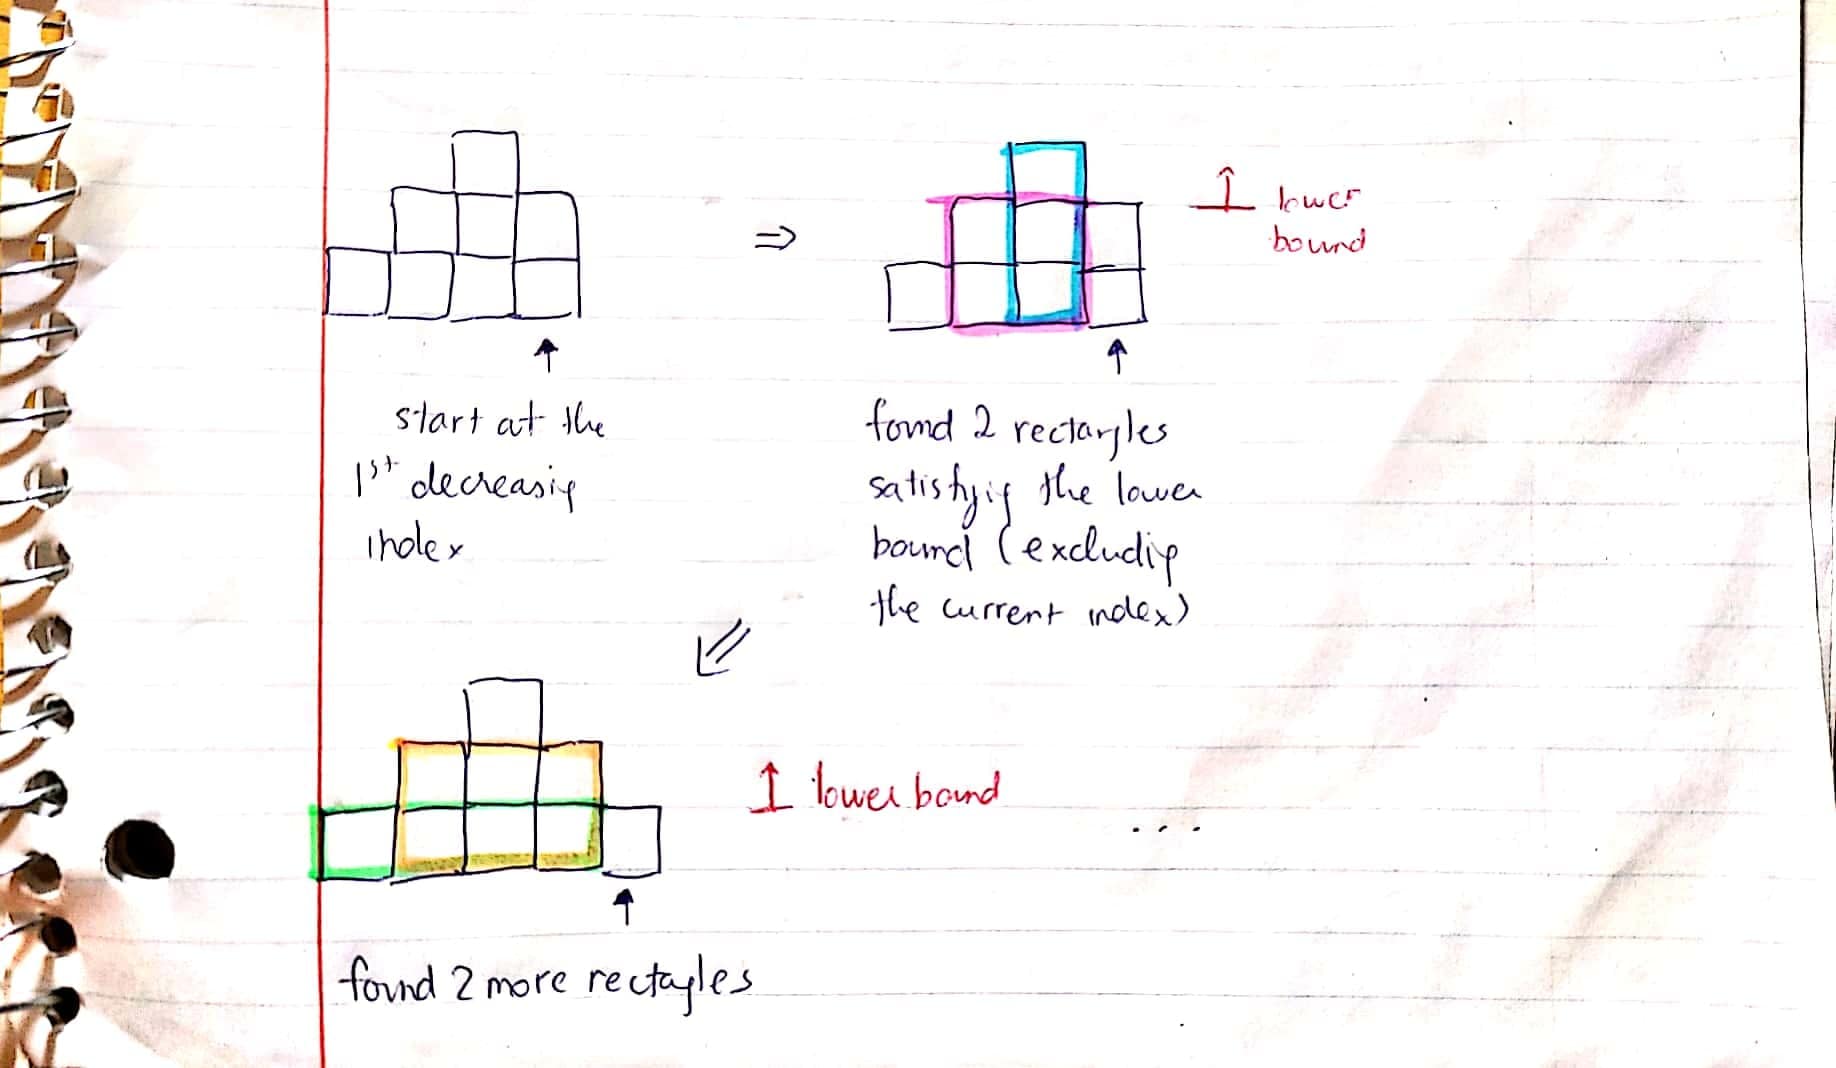 start at the
1st decreasing
index
⇒
lower
bound
found 2 rectangles
satisfying the lower
bound (excluding
the current index)
lower bound
...
found 2 more rectagles